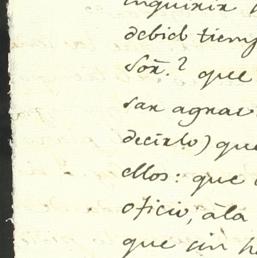 inquirir
debido tiemp
Sor.? que
san agrav
decirlo) que
ellos: que
oficio, ála
que sin h